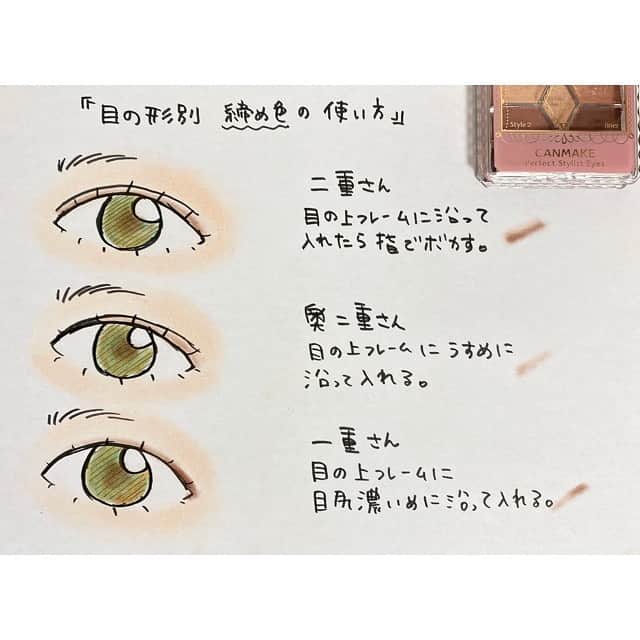 『目の形別 締め色の使い方』
Style 2
liner
CANMAKE
Perfect Stylist Eyes
二重さん
目の上フレームに沿って
入れたら指でボカす。
奥二重さん
目の上フレームにうすめに
沿って入れる。
一重さん
目の上フレームに
目尻濃いめに沿って入れる。